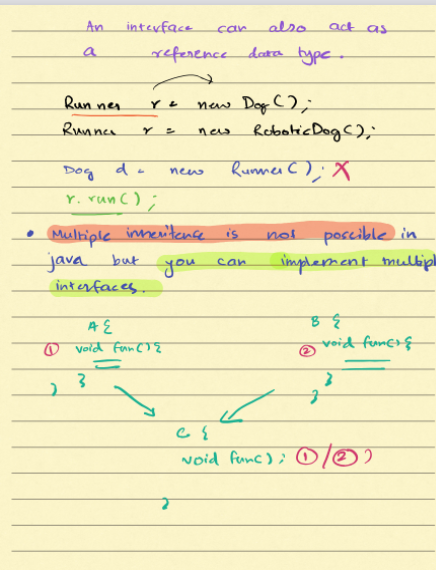 An interface can also act as
a reference data type.
Runner r = new Dog();
Runner r = new RoboticDog();
Dog d = new Runner(); X
r.run();
• Multiple inheritence is not possible in
java but you can implement multipl
interfaces.
A { B {
① void fun() { ② void fun() {
} }
} }
C {
void fun(); ①/② ?
}